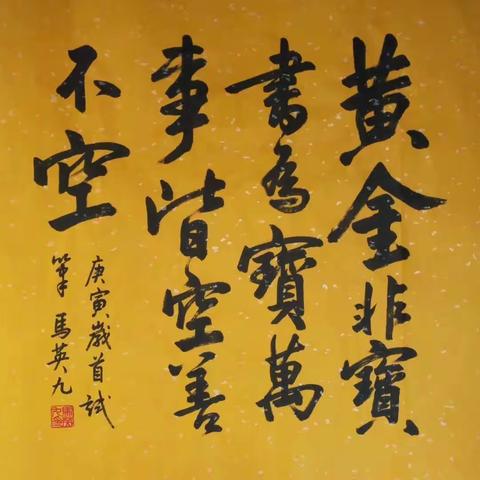 黃金非寶
書為寶萬
事皆空善
不空
庚寅歲首試
筆馬英九